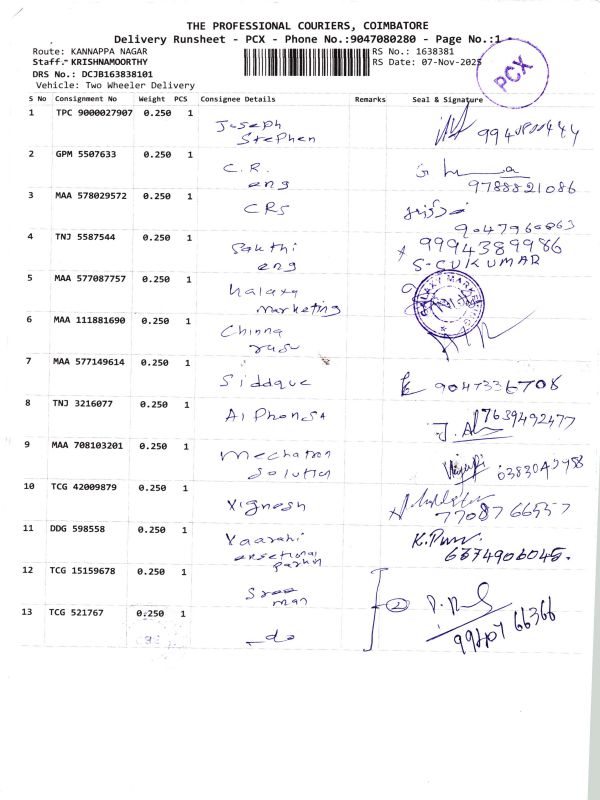 THE PROFESSIONAL COURIERS, COIMBATORE
Delivery Runsheet - PCX - Phone No.:9047080280 - Page No.:1
Route: KANNAPPA NAGAR
RS No.: 1638381
Staff.- KRISHNAMOORTHY
RS Date: 07-Nov-2025
DRS No.: DCJB163838101
Vehicle: Two Wheeler Delivery
PCX
S No Consignment No Weight PCS Consignee Details Remarks Seal & Signature
1 TPC 9000027907 0.250 1 Joseph
Stephen
2 GPM 5507633 0.250 1 C.R.
eng
9788821086
3 MAA 578029572 0.250 1 CRS
9047960863
4 TNJ 5587544 0.250 1 Sakthi
eng
9994389986
S-CUKUMAR
5 MAA 577087757 0.250 1 Galaxy
marketing
GALAXY MARKETING
6 MAA 111881690 0.250 1 Chinna
7 MAA 577149614 0.250 1 Siddque
9047336708
8 TNJ 3216077 0.250 1 Alphonsa
7639492477
9 MAA 708103201 0.250 1 Mechatron
Solution
10 TCG 42009879 0.250 1 Vignesh
7708766557
11 DDG 598558 0.250 1 Vaarahi
K.
6374906045.
12 TCG 15159678 0.250 1 Sree
man
13 TCG 521767 0.250 1 do
2
9940766366